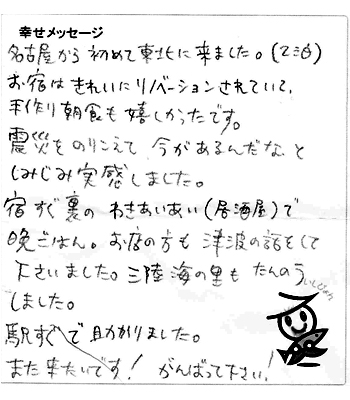 幸せメッセージ
名古屋から初めて東北に来ました。(2泊)
お宿はきれいにリノベーションされていて、
手作り朝食も嬉しかったです。
震災をのりこえて 今があるんだな と
しみじみ実感しました。
宿すぐ裏の わきあいあい(居酒屋)で
晩ごはん。お店の方も 津波の話をして
下さいました。三陸海の里も たんのう
しました。
駅すぐで助かりました。
また来たいです! がんばって下さい!